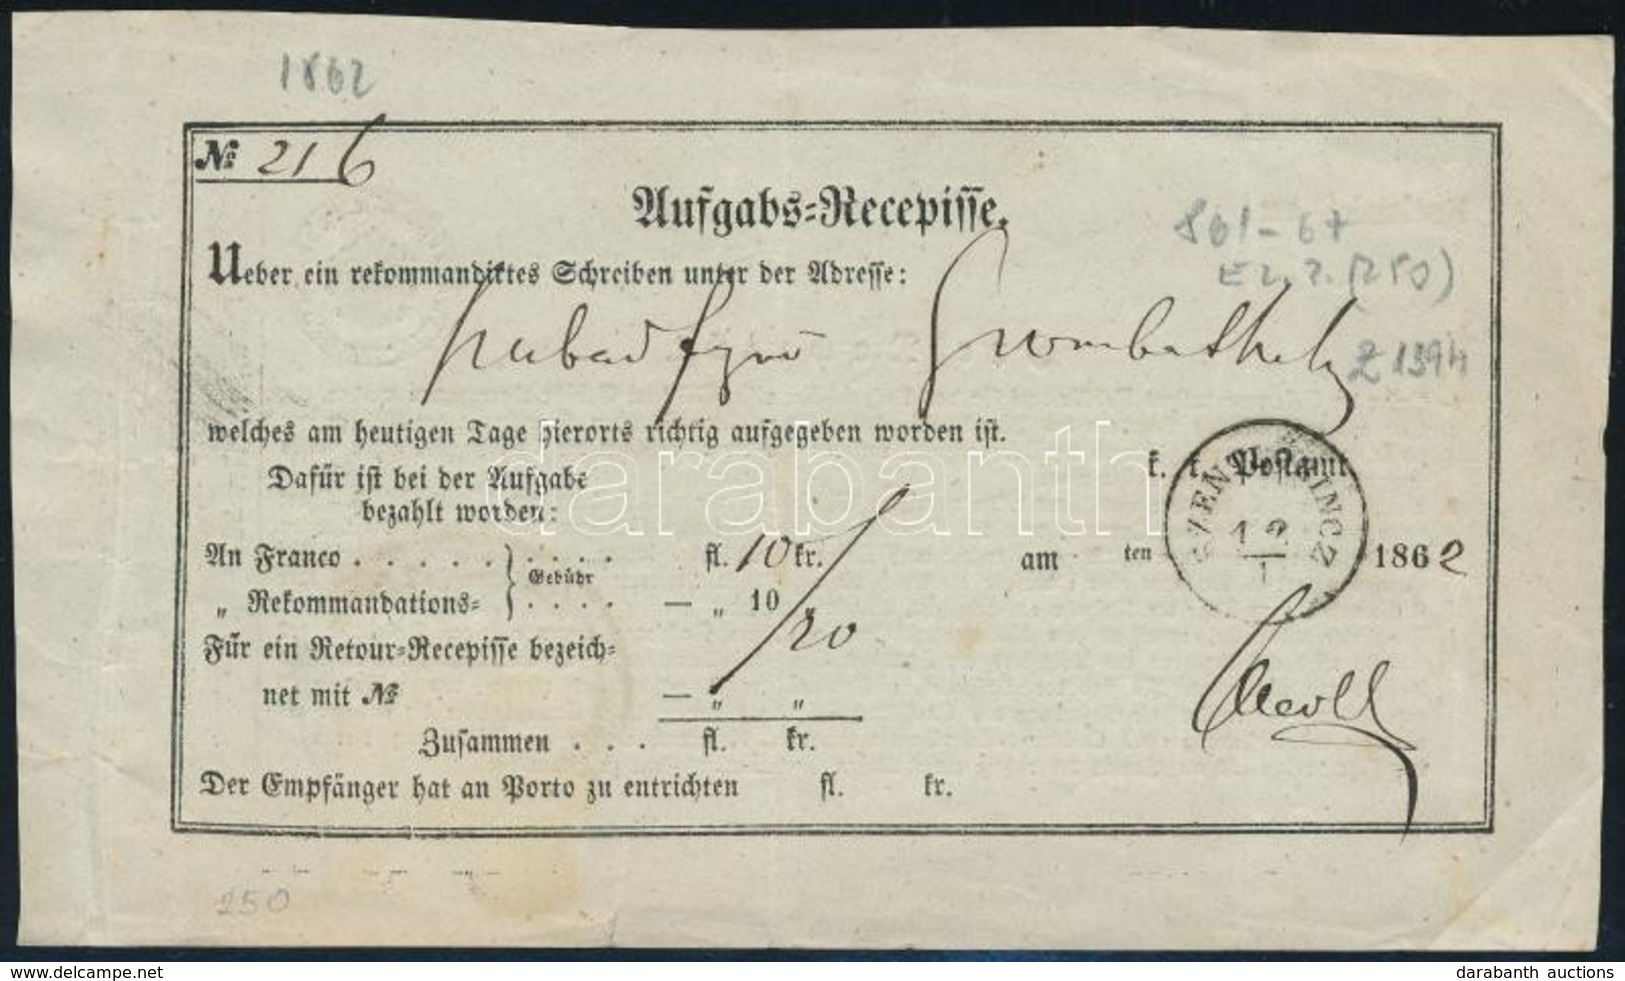 1862
№ 216
Aufgabs-Recepisse.
861-67
Ueber ein rekommandirtes Schreiben unter der Adresse:
(250)
Z 1394
welches am heutigen Tage hierorts richtig aufgegeben worden ist.
darabanth
Dafür ist bei der Aufgabe
k. k. Postamt
bezahlt worden:
12
1
An Franco . . . . . . . . . fl. 10 kr.
Gebühr
am ten 1862
„ Rekommandations= . . . . — „ 10 „
20
Für ein Retour-Recepisse bezeich=
net mit № — „ „
Zusammen . . . fl. kr.
Der Empfänger hat an Porto zu entrichten fl. kr.
250
delcampe.net
darabanth auctions